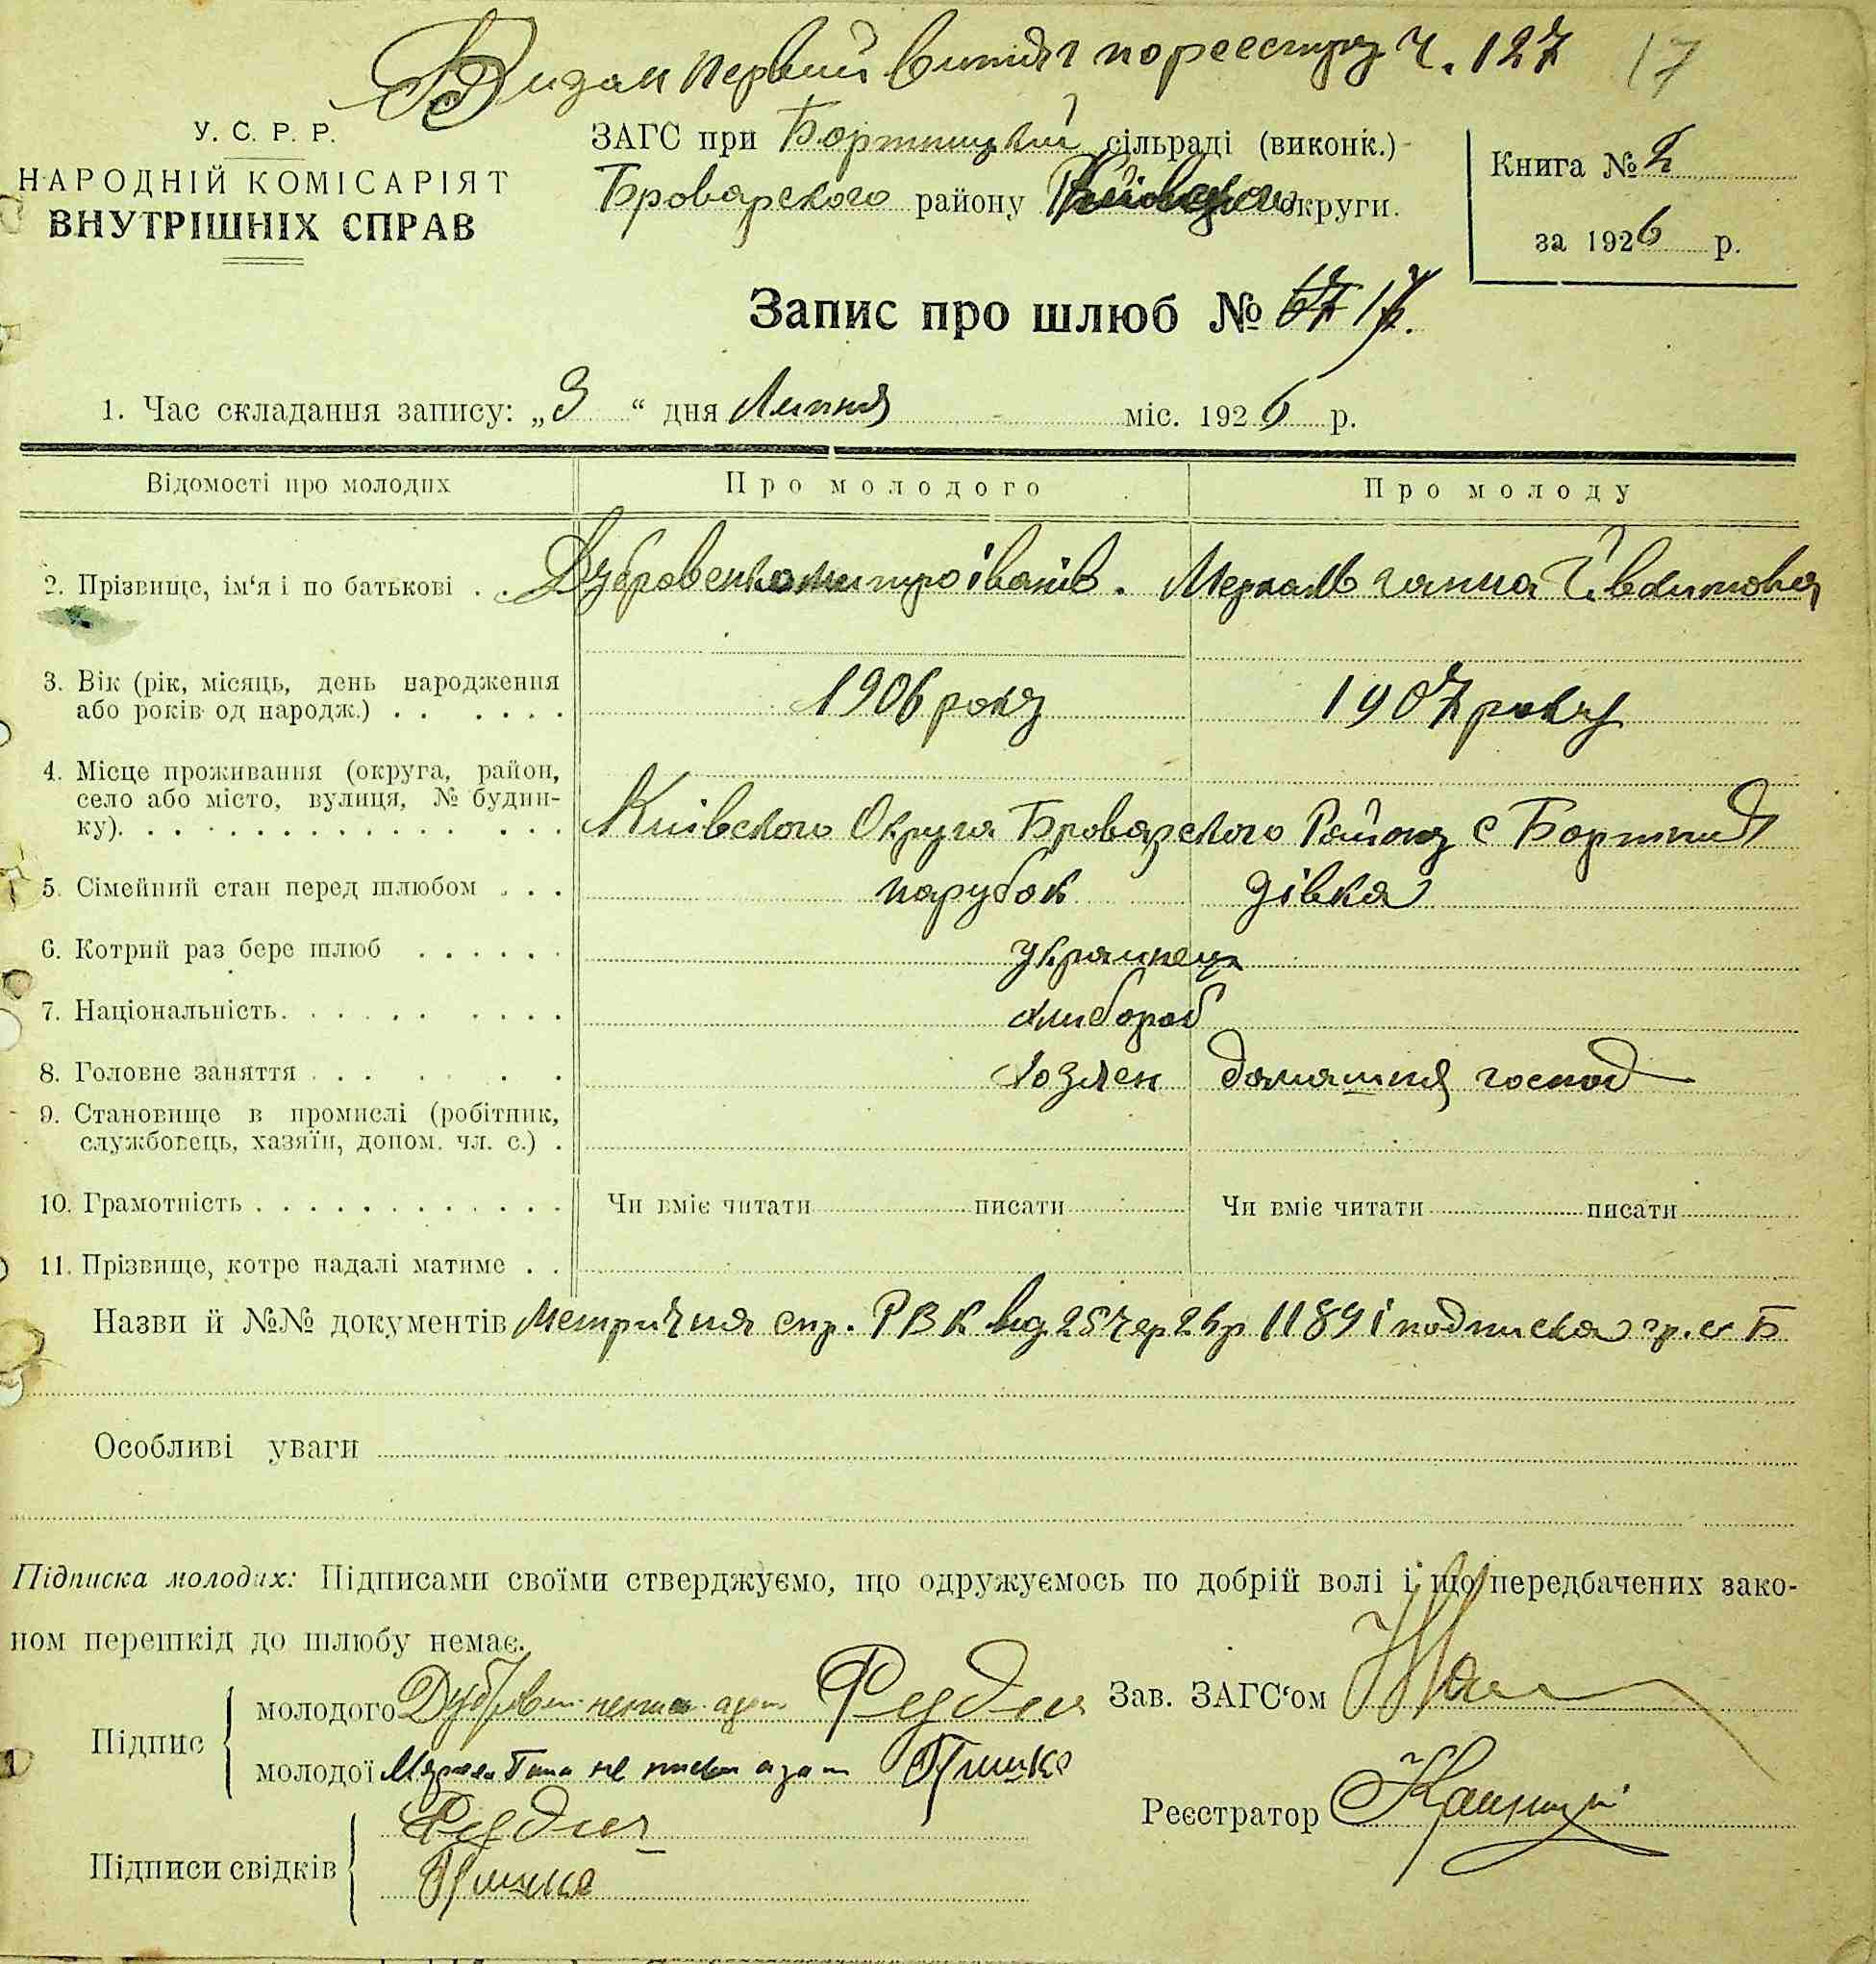 Видан первий витяг по реестру Ч. 127 17
У. С. Р. Р.
НАРОДНІЙ КОМІСАРІЯТ
ВНУТРІШНІХ СПРАВ
ЗАГС при Бортницкий сільраді (виконк.)
Броварского району округи.
Книга № 2
за 1926 р.
Запис про шлюб № 17.
1. Час складання запису: „3“ дня Липня міс. 1926 р.
Відомості про молодих Про молодого Про молоду
2. Прізвище, ім‘я і по батькові . . Дубровенко іванів.
3. Вік (рік, місяць, день народження
або років од народж.) . . . . . . 1906 року 1907 року
4. Місце проживання (округа, район,
село або місто, вулиця, № будин-
ку). . . . . . . . . . . . . . . . Київского Округа Броварского Району с
5. Сімейний стан перед шлюбом . . . парубок дівка
6. Котрий раз бере шлюб . . . . . . украинец
7. Національність. . . . . . . . . . хлибороб
8. Головне заняття . . . . . . домашня господ
9. Становище в промислі (робітник,
службовець, хазяїн, допом. чл. с.) .
10. Грамотність . . . . . . . . . . . . Чи вміє читати писати Чи вміє читати писати
11. Прізвище, котре надалі матиме . .
Назви й №№ документів Метрична спр. РВК вид 25 чер 26р 1189 і подписка гр. с Б
Особливі уваги
Підписка молодих: Підписами своїми стверджуємо, що одружуємось по добрій волі і що передбачених зако-
ном перешкід до шлюбу немає.
Підпис
молодого
Зав. ЗАГС‘ом
молодої
Реєстратор
Підписи свідків